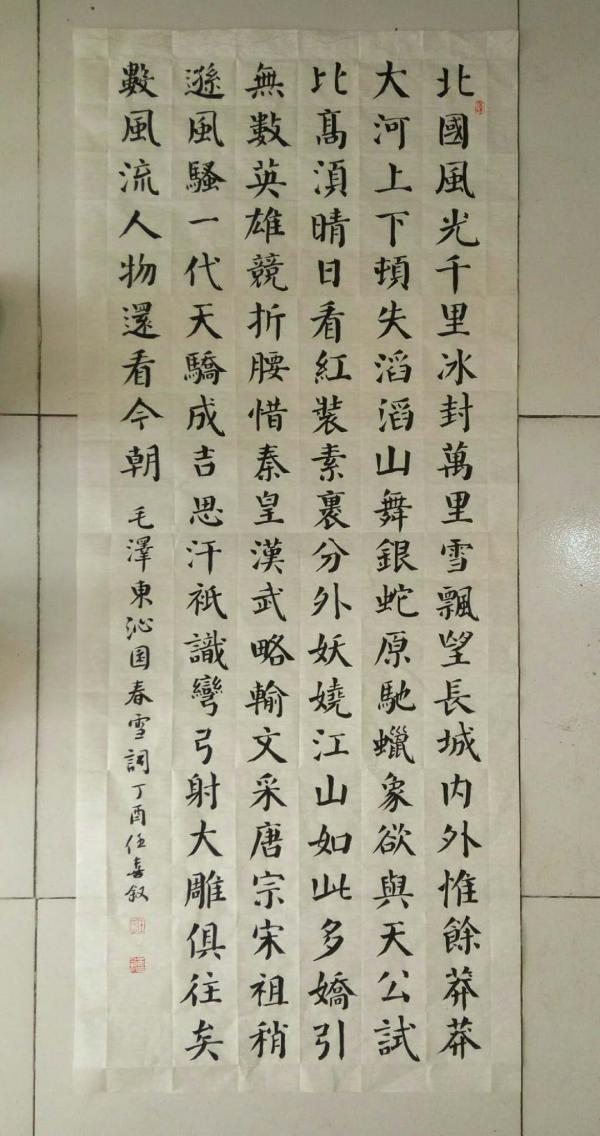 北國風光千里冰封萬里雪飄望長城内外惟餘莽莽
大河上下頓失滔滔山舞銀蛇原馳蠟象欲與天公試
比髙湏晴日看紅裝素裹分外妖嬈江山如此多嬌引
無數英雄競折腰惜秦皇漢武略輸文采唐宗宋祖稍
遜風騷一代天驕成吉思汗祇識彎弓射大雕俱往矣
數風流人物還看今朝
毛澤東沁国春雪詞丁酉任喜叙